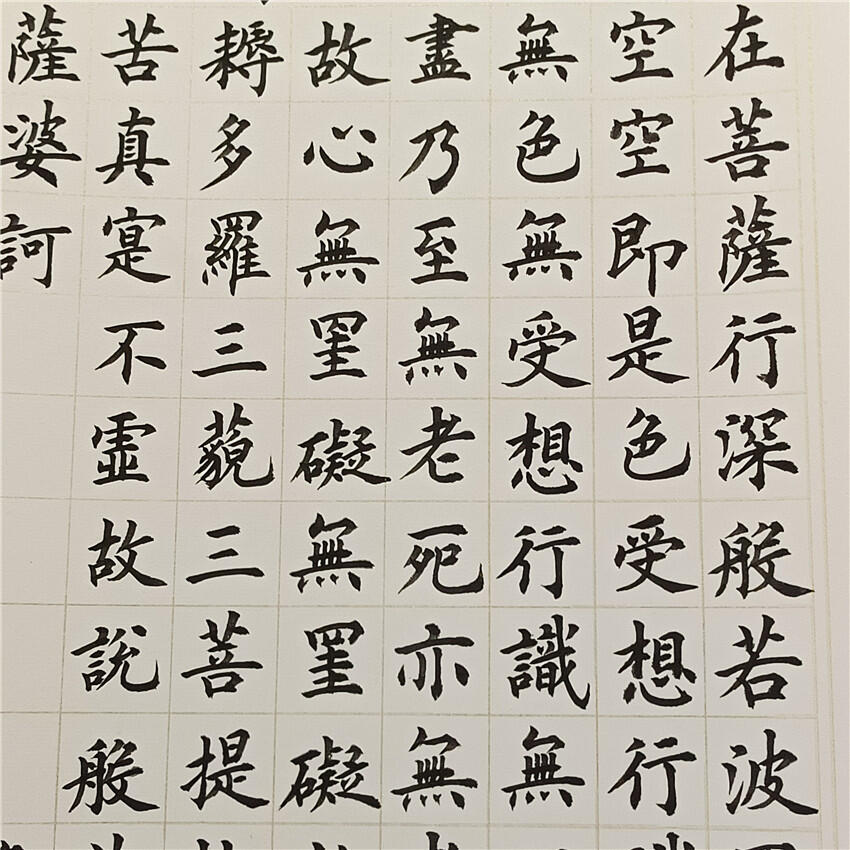 在菩薩行深般若波
空空即是色受想行
無色無受想行識無
盡乃至無老死亦無
故心無罣礙無罣礙
耨多羅三藐三菩提
苦真寔不虛故說般
薩婆訶